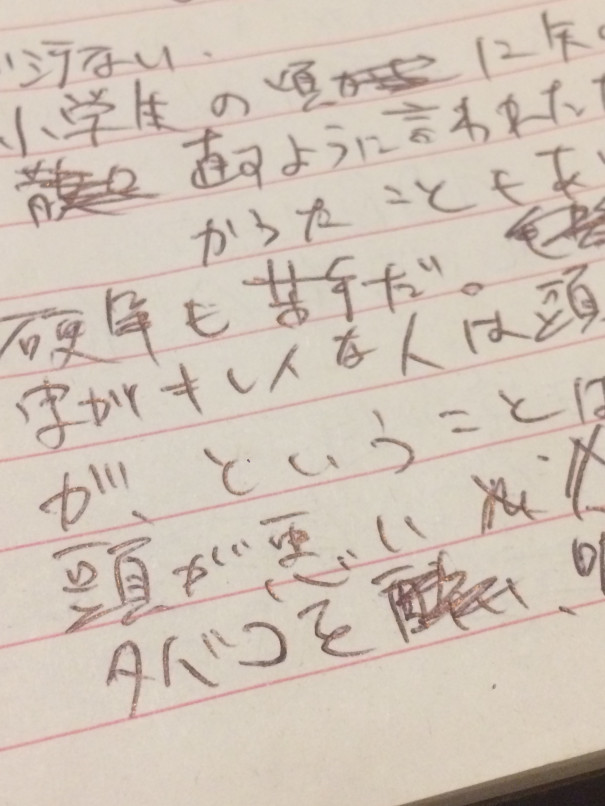 汚ない.
小学生の頃 に
直すように言われた
からたこともあ
硬筆も苦手だ。
字がキレイな人は頭
が、ということは
頭が悪い
タバコを